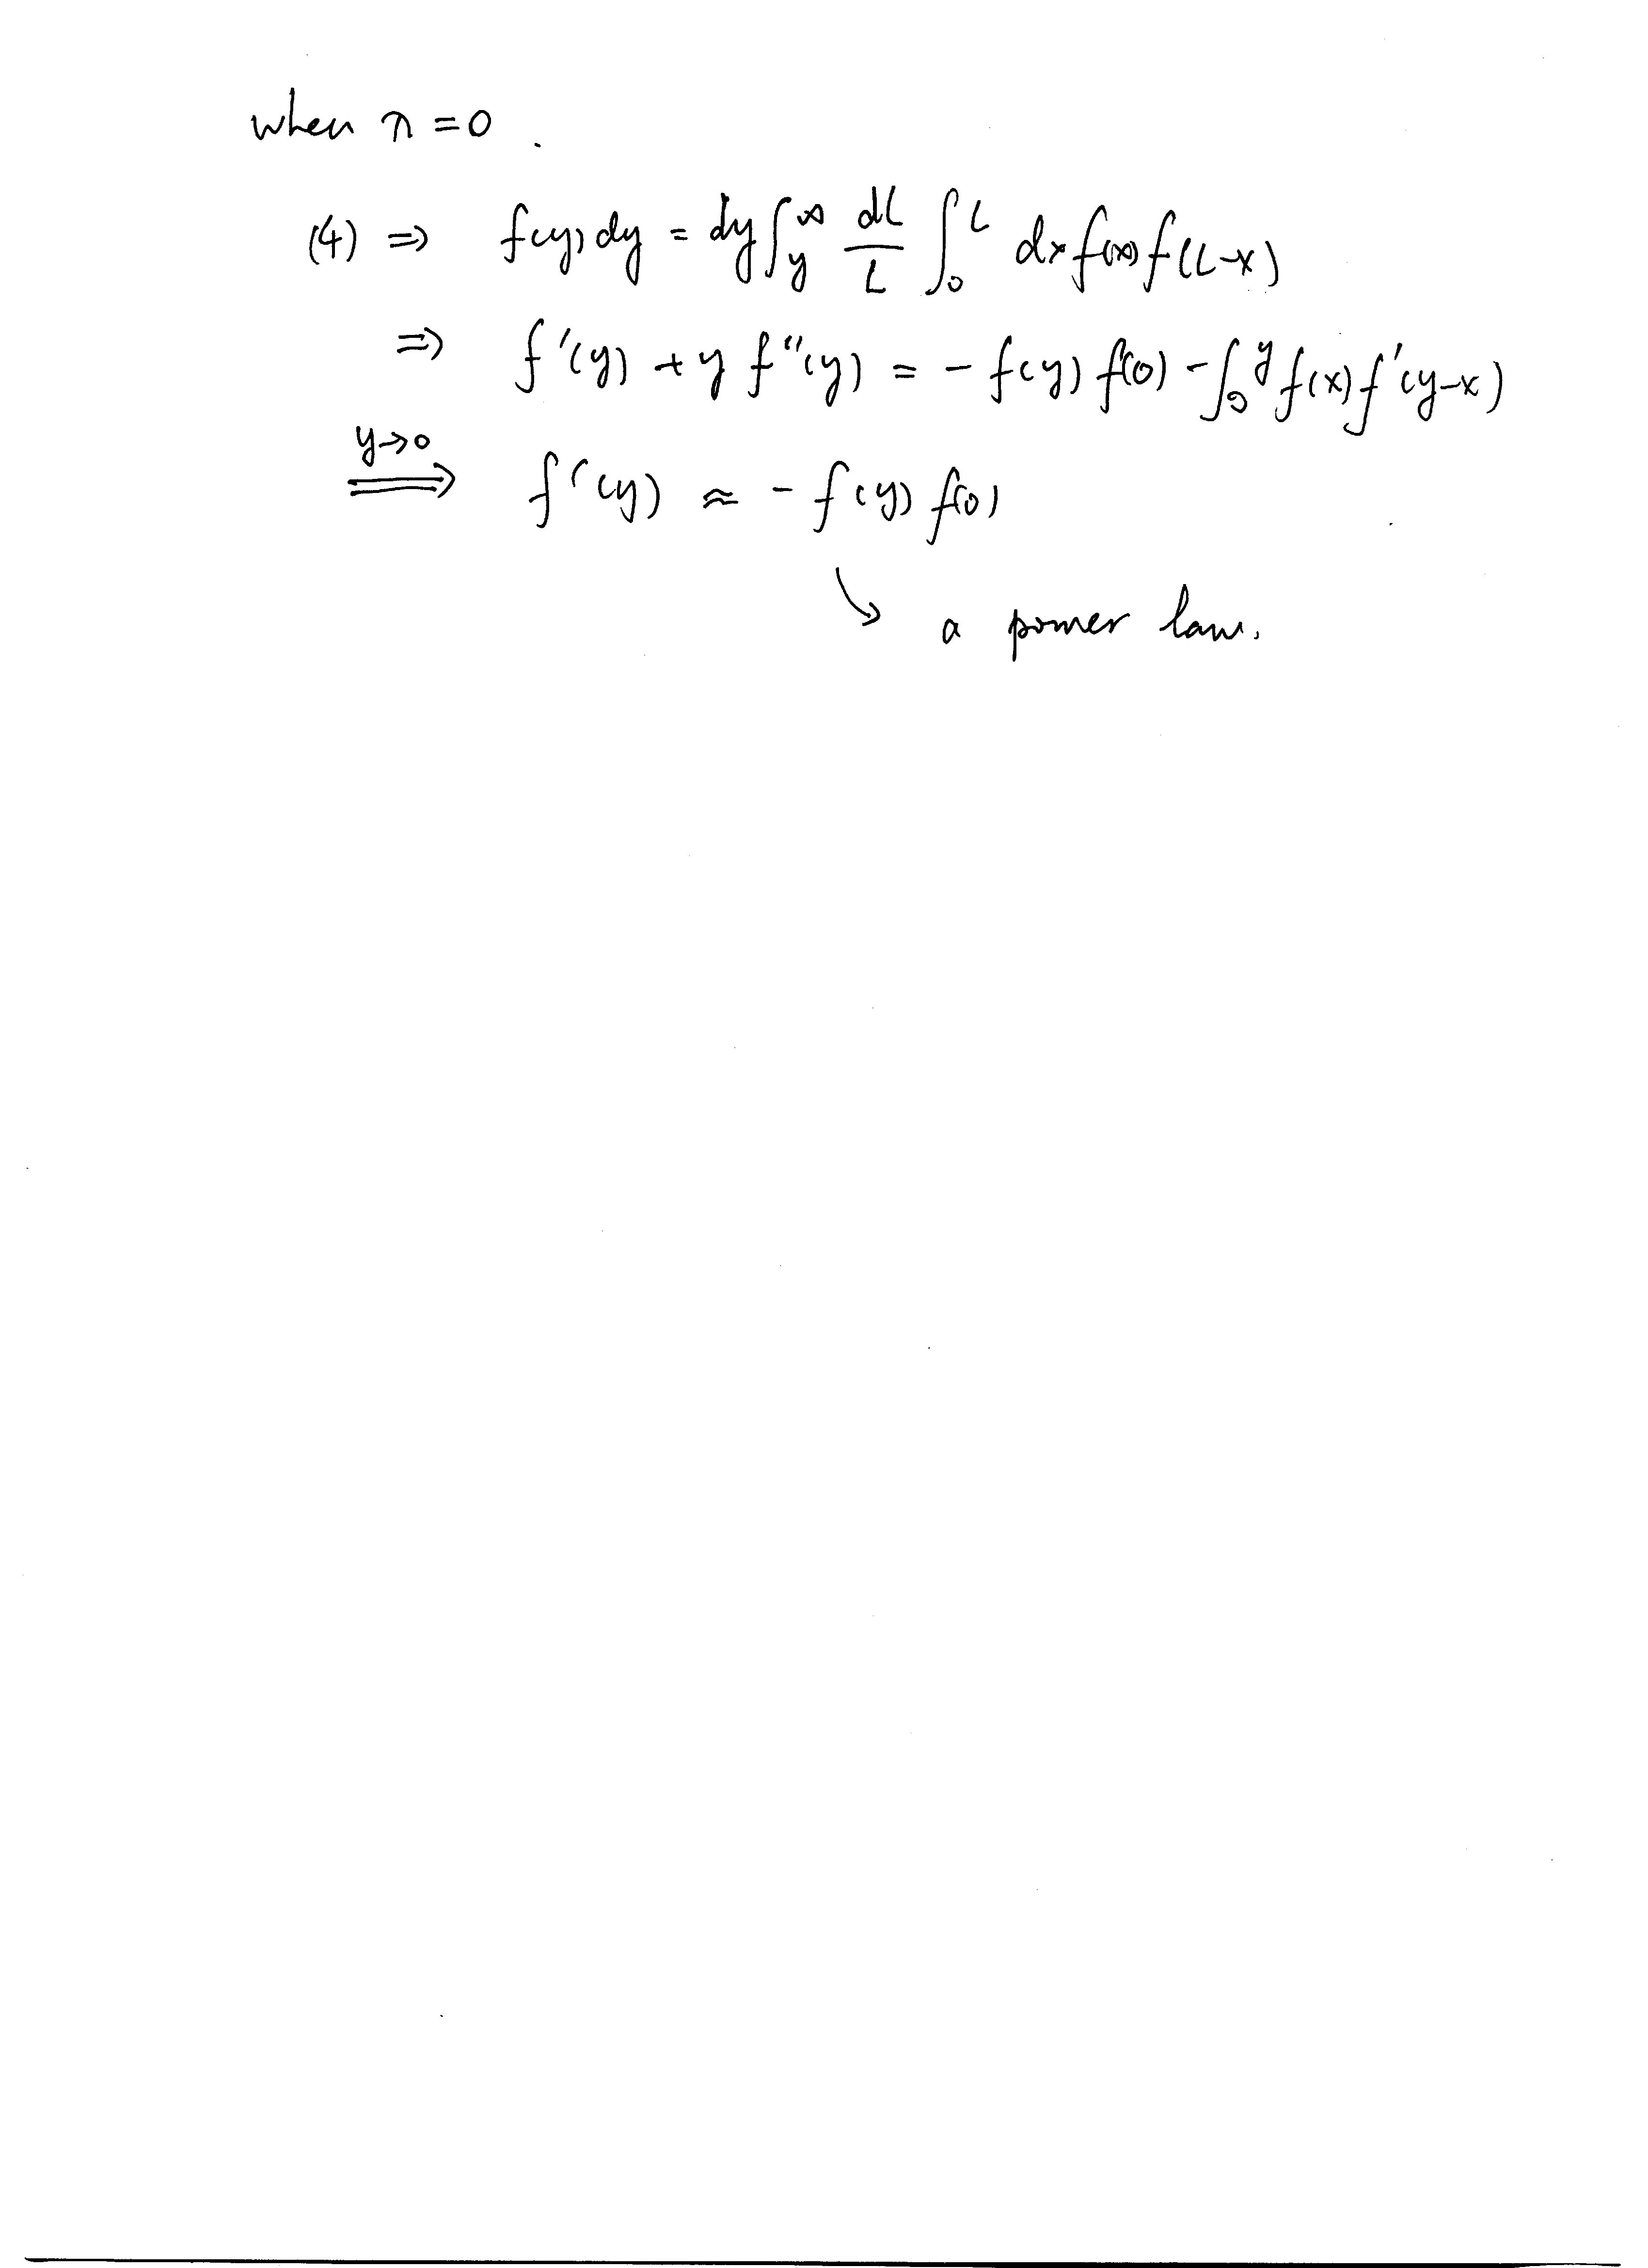 when n = 0 .
(4) ⇒ f(y) dy = dy ∫_y^∞ dL/L ∫_0^L dx f(x) f(L-x)
⇒ f'(y) + y f''(y) = - f(y) f(0) - ∫_0^y f(x) f'(y-x)
y→0 ⟹ f'(y) ≈ - f(y) f(0)
↘ a power law.